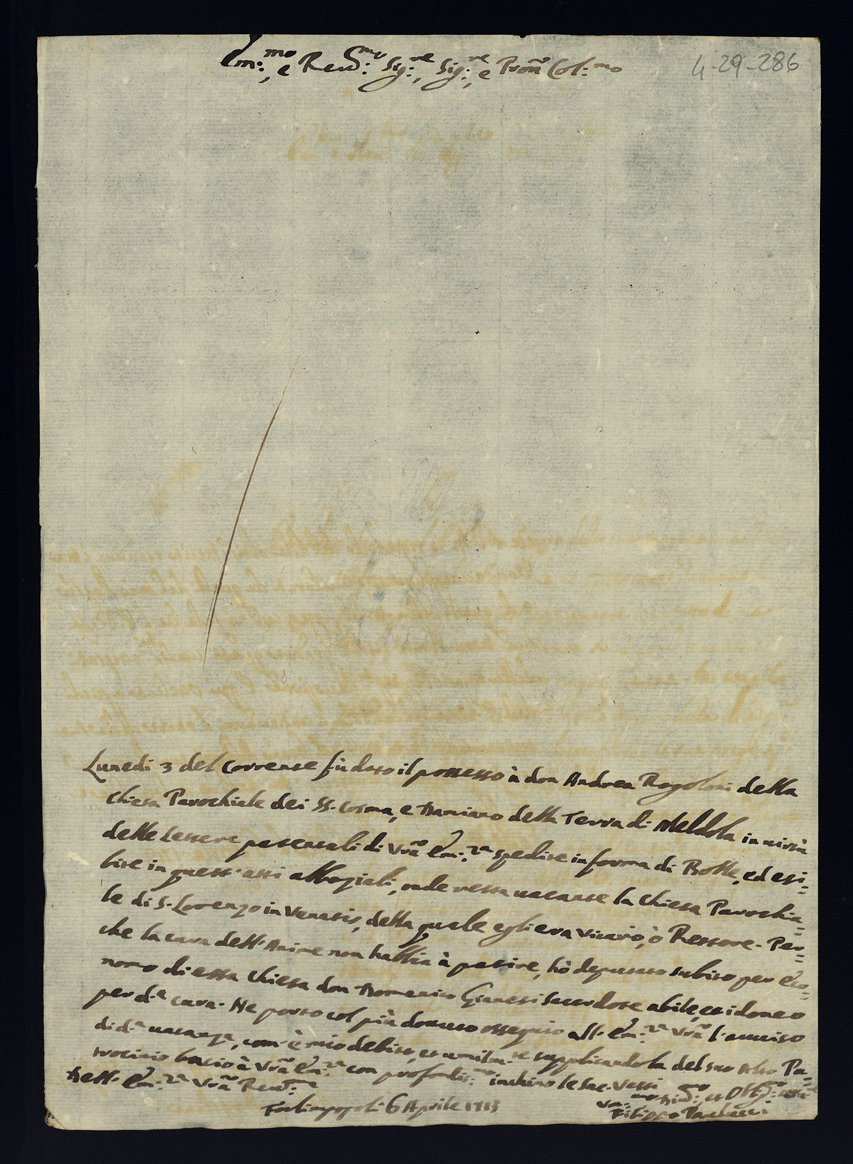 Em:mo, e Revd:mo Sig:re, Sig:re, e Pron Col:mo
4-29-286
Lunedi 3 del Corrente fù dato il possesso à don Andrea Rogoloni della
Chiesa Parochiale dei SS. Cosma, e Damiano della Terra di Meldola in virtù
delle Lettere patentali di Vrã Em:za spedite in forma di Bolle, ed esi=
bite in quest'atti, onde resta vacante la Chiesa Parochia=
le di S. Lorenzo in, della quale egli era Vicario, ò Rettore. Per=
che la cura dell'Anime non habbia à patire, hò deputato subito per Eco=
nomo di essa Chiesa don Domenico Sacerdote abile, et idoneo
per d:a cura. Ne porto col più dovuto ossequio all'Em:za Vrã l'avviso
di d:a vacanza, com'è mio debito, et supplicandola del suo alto Pa=
trocinio bacio à Vrã Em:za con profondis:mo inchino le Sac. Vesti
Dell'Em:za Vrã Rev:ma
Forlimpopoli 6 Aprile 1713
Filippo